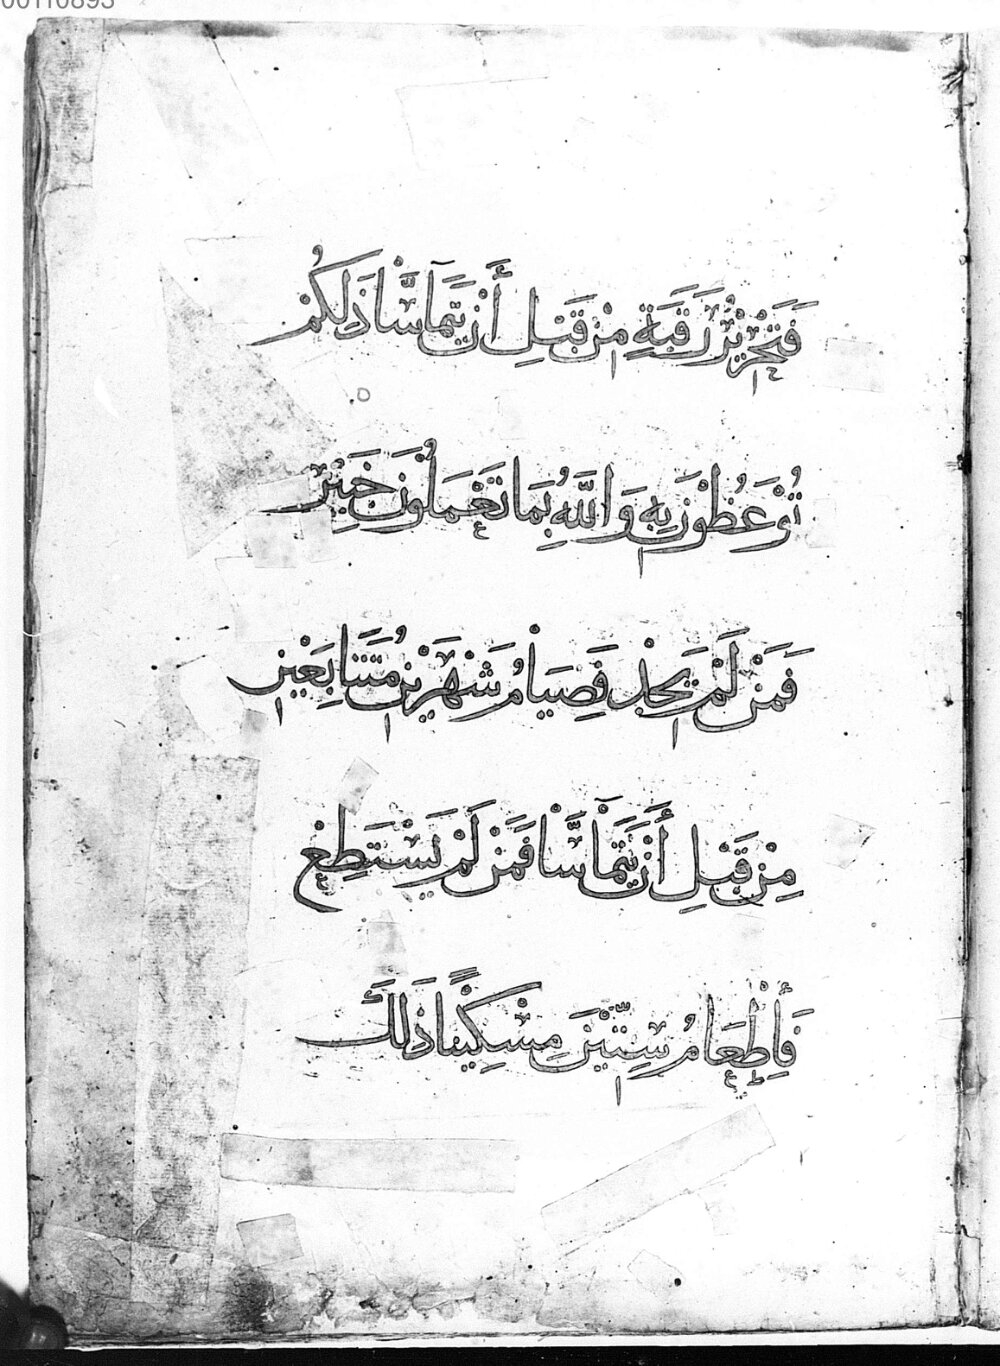 00110893
فَتَحْرِيرُ رَقَبَةٍ مِنْ قَبْلِ أَنْ يَتَمَآسَّا ذَلِكُمْ
تُوْعَظُوْنَ بِهِ وَاللَّهُ بِمَا تَعْمَلُوْنَ خَبِيْرٌ
فَمَنْ لَمْ يَجِدْ فَصِيَامُ شَهْرَيْنِ مُتَتَابِعَيْنِ
مِنْ قَبْلِ أَنْ يَتَمَآسَّا فَمَنْ لَمْ يَسْتَطِعْ
فَإِطْعَامُ سِتِّيْنَ مِسْكِيْنًا ذَلِكَ